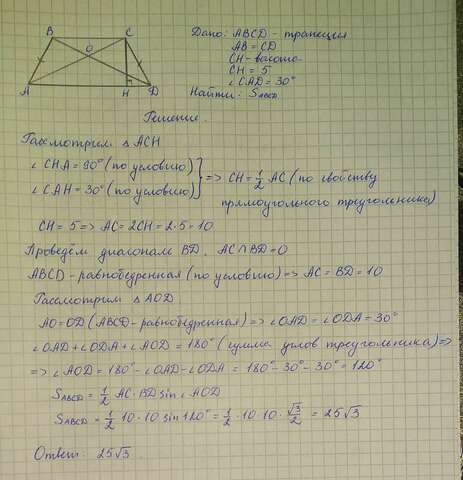 B C
O
A H D
Дано: ABCD - трапеция
AB = CD
CH - высота
CH = 5
∠CAD = 30°
Найти: S_ABCD
Решение.
Рассмотрим △ ACH
∠ CHA = 90° (по условию)
∠ CAH = 30° (по условию)
} => CH = 1/2 AC (по свойству
прямоугольного треугольника)
CH = 5 => AC = 2CH = 2 · 5 = 10
Проведём диагональ BD. AC ∩ BD = O
ABCD - равнобедренная (по условию) => AC = BD = 10
Рассмотрим △ AOD
AO = OD (ABCD - равнобедренная) => ∠OAD = ∠ODA = 30°
∠OAD + ∠ODA + ∠AOD = 180° (сумма углов треугольника) =>
=> ∠AOD = 180° - ∠OAD - ∠ODA = 180° - 30° - 30° = 120°
S_ABCD = 1/2 AC · BD sin ∠ AOD
S_ABCD = 1/2 10 · 10 sin 120° = 1/2 · 10 · 10 · √3/2 = 25√3
Ответ: 25√3.